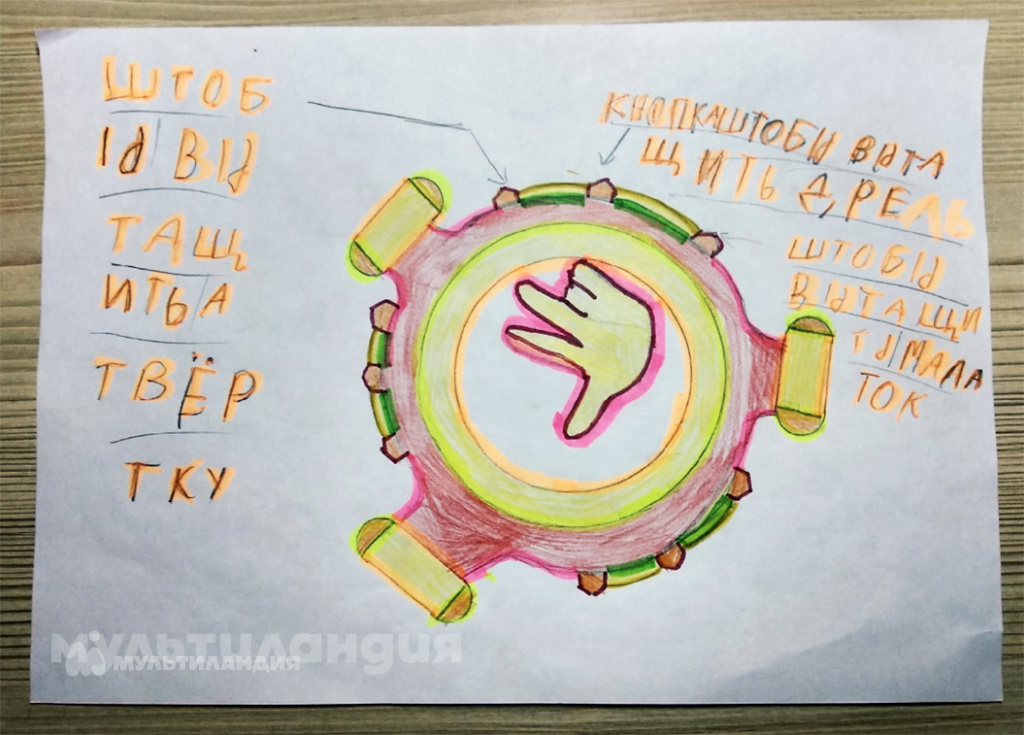 ШТОБ
Ы ВЫ
ТАЩ
ИТЬ А
ТВЁР
ТКУ
КНОПКАШТОБЫ ВЫТА
ЩИТЬ ДРЕЛЬ
ШТОБЫ
ВЫТАЩИ
ТЬ МАЛА
ТОК
мультиландия
МУЛЬТИЛАНДИЯ